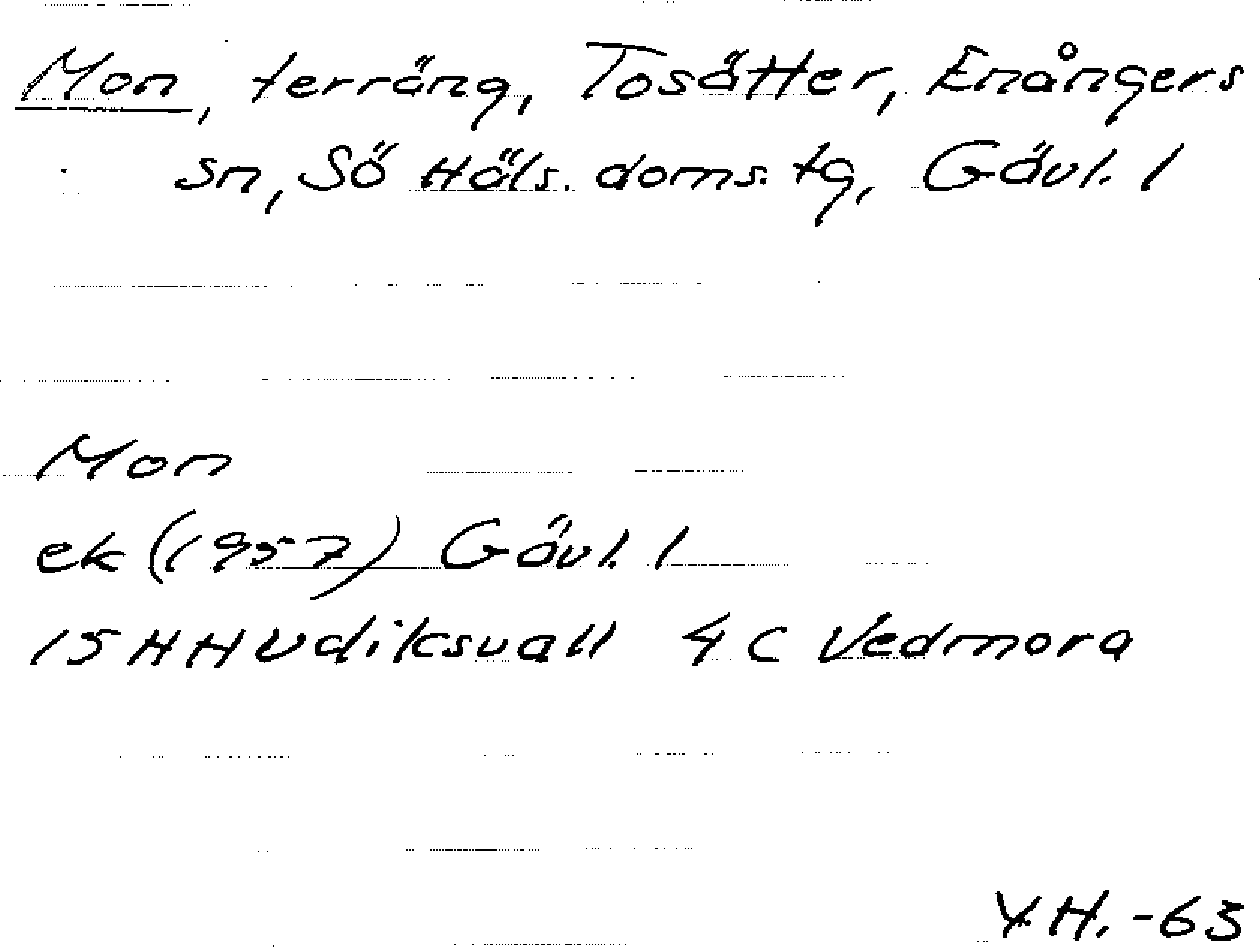 Mon, terräng, Tosätter, Enångers
sn, Sö Häls. doms. tg, Gävl. l
Mon
ek (1957) Gävl. l
15 H Hudiksvall 4 C Vedmora
Y.H. -63